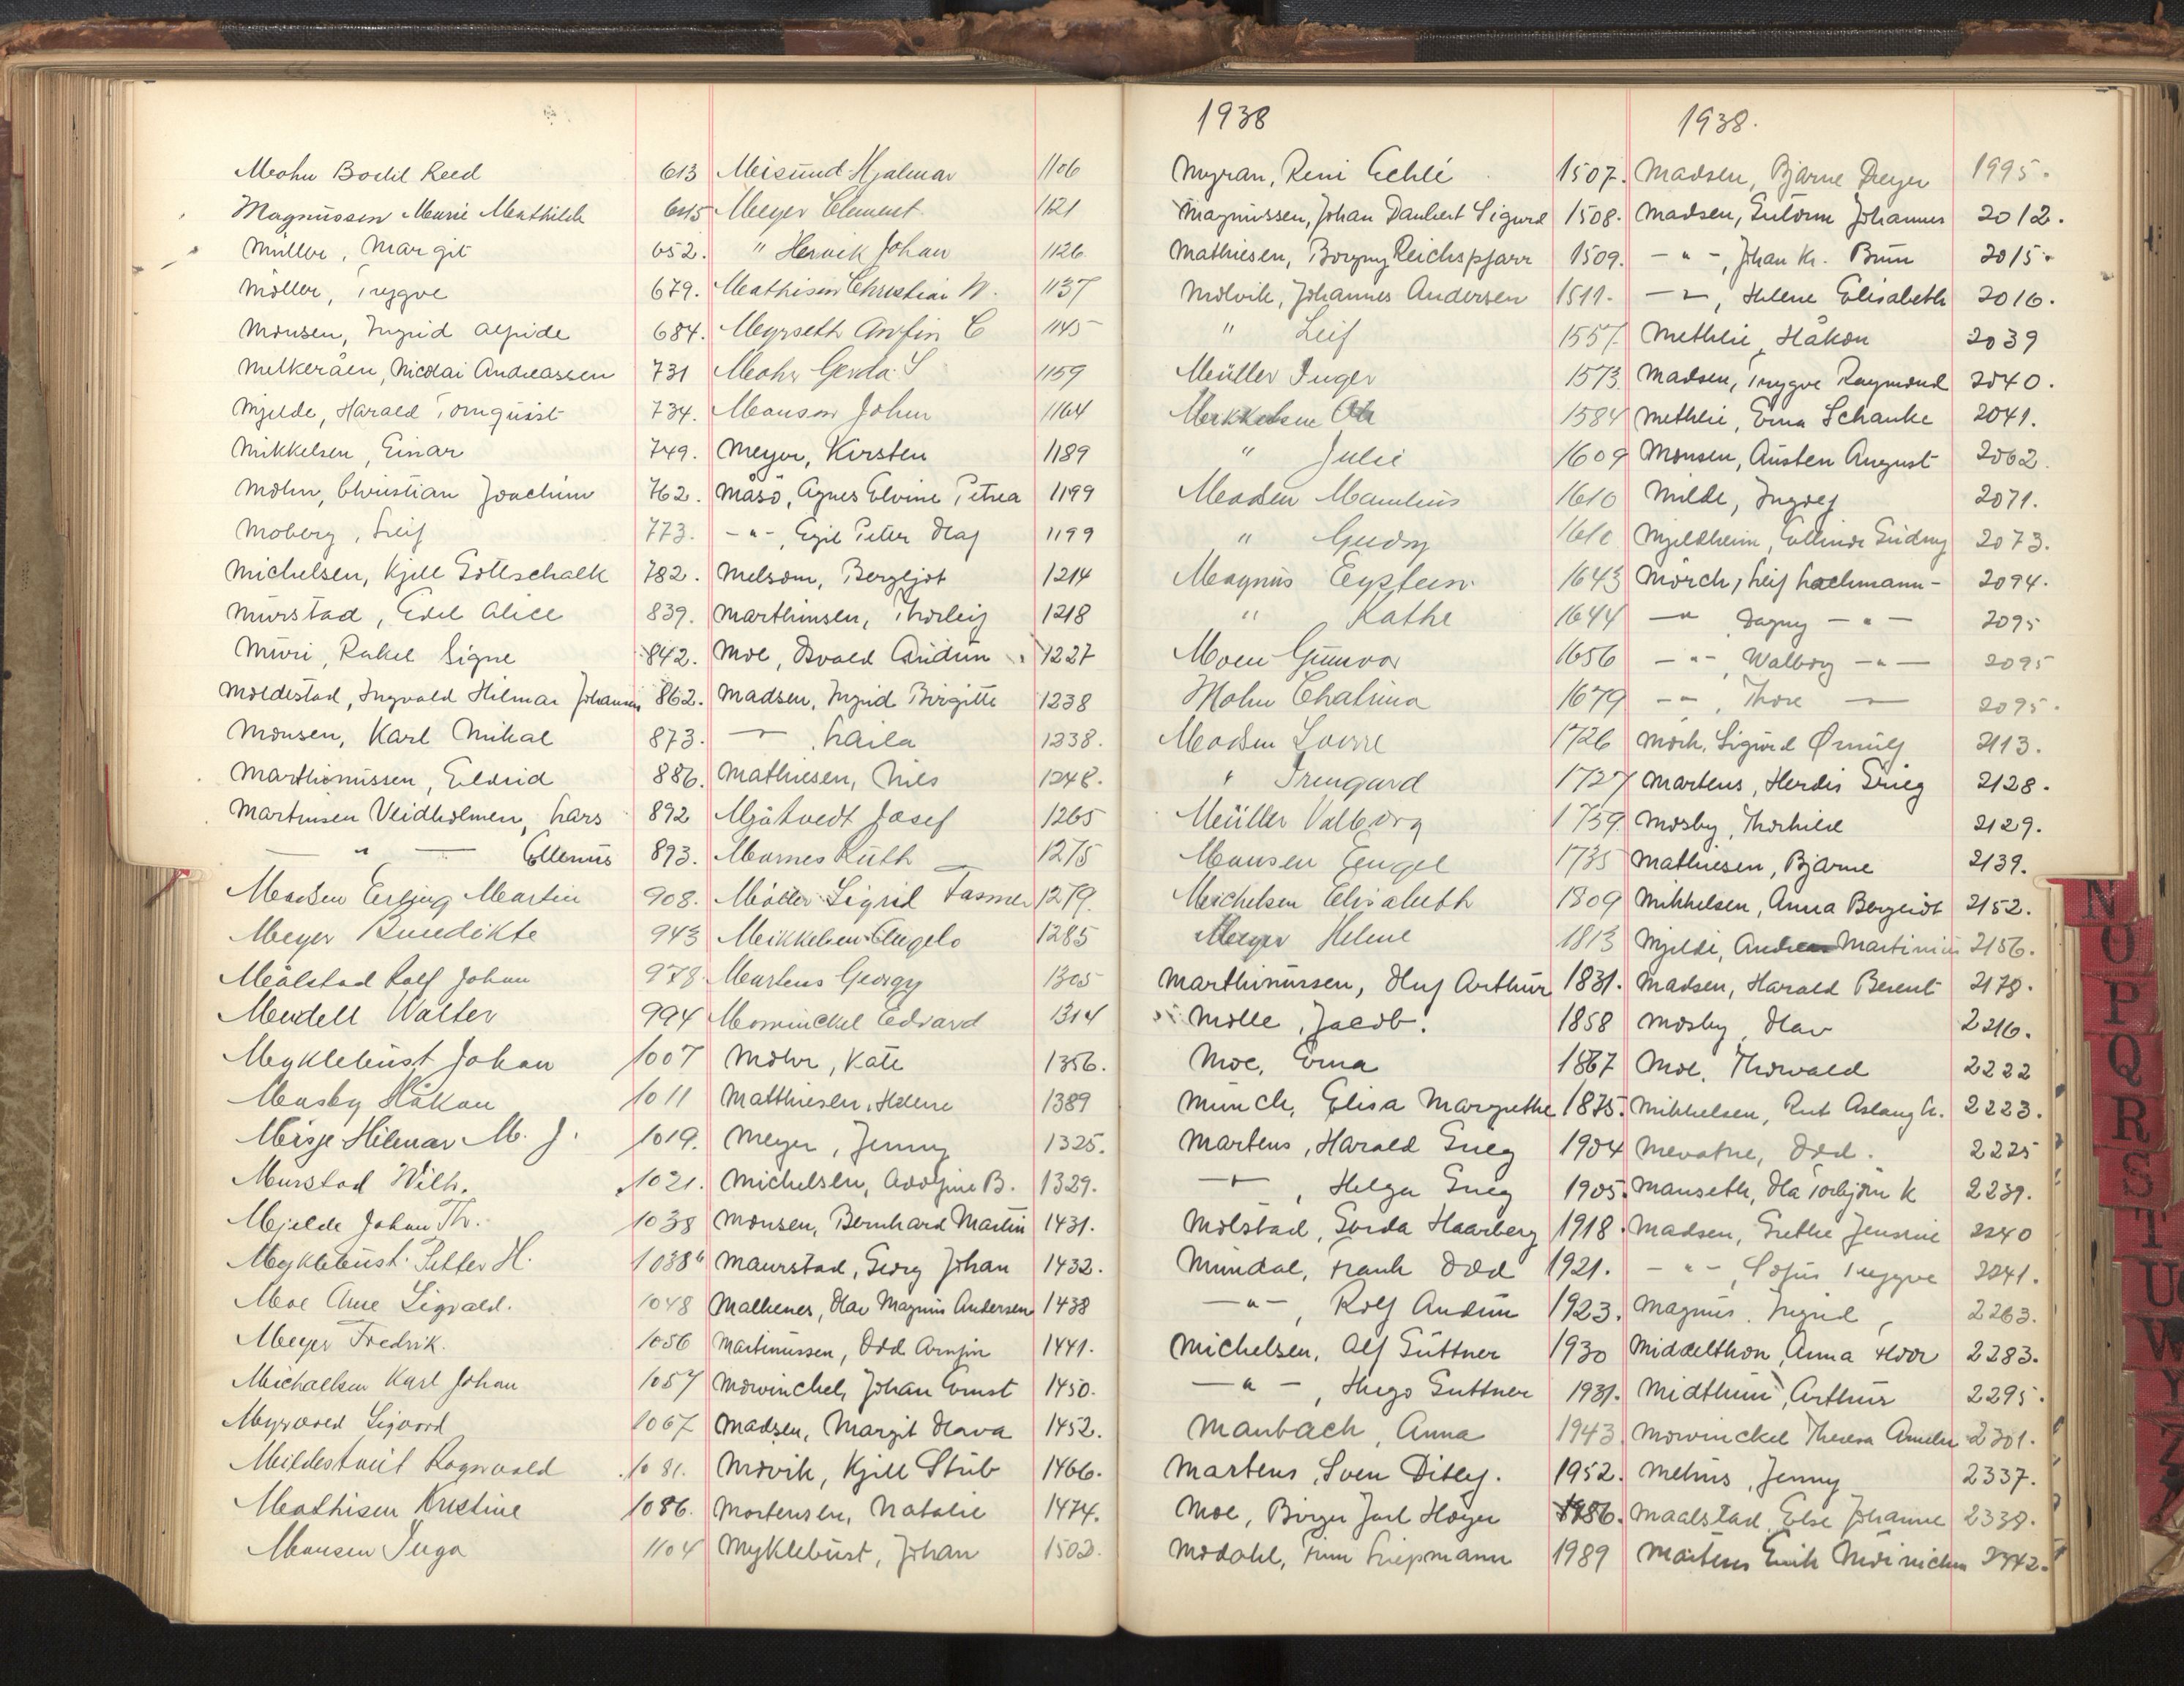 Mohn Bodil Reed 613
Magnussen Marie Mathilde 645
Müller, Margit 652.
Möller, Trygve 679.
Monsen, Ingrid Alfide 684.
Melkeråen, Nicolai Andreassen 731
Mjelde, Harald Tornquist 734.
Mikkelsen, Einar 749.
Mohn, Christian Joachim 762.
Moberg, Leif 773.
Michelsen, Kjell Gottschalk 782.
Murstad, Edel Alice 839.
Muri, Rakel Signe 842.
Moldestad, Ingvald Hilmar Johannes 862.
Monsen, Karl Mikal 873.
Marthinussen, Eldrid 886.
Martinsen Veidholmen, Lars 892
— " — Ellenus 893.
Madsen Erling Martin 908.
Meyer Benedikte 943
Målstad Rolf Johan 978.
Mendell Walter 994
Myklebust Johan 1007
Mosby Håkon 1011
Misje Hilmar M. J. 1019.
Murstad Wilh. 1021.
Mjelde Johan Th. 1038
Myklebust Petter H. 1038"
Moe Arne Sigvald. 1048
Meyer Fredrik. 1056
Michaelsen Karl Johan 1057
Myrvold Sigvord 1067
Mildestveit Ragnvald 1081.
Mathisen Kristine 1086.
Monsen Inga 1104
Misund Hjalmar 1106
Meyer Clement 1121
" Henrik Johan 1126
Mathisen Christian W. 1137
Myrseth Arnfin C 1145
Mohr Gerda S 1159
Monsen John 1164
Meyer, Kirsten 1189
Måsö, Agnes Elvine Petrea 1199
- " -, Egil Peter Olaf 1199
Melsom, Bergljot 1214
Marthinsen, Thorleif 1218
Moe, Osvald Audun 1227
Madsen, Ingrid Birgitte 1238
— " , Laila 1238.
Mathiesen, Nils 1248.
Mjåtvedt Josef 1265
Marnes Ruth 1275
Möller Sigrid Fasmer 1279.
Mikkelsen Engelo 1285
Martens Georgy 1305
Mowinckel Edvard 1314
Mohr, Kate 1356.
Matthiesen, Helene 1389
Meyer, Jenny 1325.
Michelsen, Adolfine B. 1329.
Monsen, Bernhard Martin 1431.
Maurstad, Georg Johan 1432.
Malkenes, Olav Magnus Andersen 1438
Martinussen, Odd Arnfin 1441.
Mowinckel, Johan Ernst 1450.
Madsen, Margit Olava 1452.
Movik, Kjell Stub 1466.
Mortensen, Natalie 1474.
Myklebust, Johan 1502.
1938
Myran, Reni 1507.
Magnussen, Johan Danbert Sigurd 1508.
Mathiesen, Borgny Reichspfarr 1509.
Molvik, Johannes Andersen 1511.
" Leif 1557
Müller Inger 1573
Mikkelsen 1584
" Julie 1609
Madsen 1610
" Gudny 1610
Magnus Eystein 1643
" Kathe 1644
Moen Gunvor 1656
Mohn Chatrina 1679
Madsen Sverre 1726
" Irmgard 1727
Müller Valborg 1759
Monsen Engel 1735
Michelsen Elisabeth 1809
Meyer Helene 1813
Marthinussen, Oluf Arthur 1831.
Molle, Jacob. 1858
Moe, Erna 1867
Münch, Elisa Margrethe 1875.
Martens, Harald Grieg 1904
— " — , Helga Grieg 1905.
Molstad, Gerda Haarberg 1918.
Mundal, Frank Odd 1921.
— " — , Rolf Audun 1923.
Michelsen, Alf Güttner 1930
— " — , Hugo Guttner 1931.
Manbach, Anna 1943
Martens, Sven Ditlef. 1952.
Moe, Birger Jarl Høyer 1986.
Modahl, Finn Siepmann 1989
1938.
Madsen, Bjarne Dreyer 1995.
Madsen, Guttorm Johannes 2012.
- " -, Johan Kr. Bruun 2015.
— " —, Helene Elisabeth 2016.
Methlie, Håkon 2039
Madsen, Trygve Raymond 2040.
Methlie, Erna Schanke 2041.
Monsen, Austen August 2062.
Milde, Ingolf 2071.
Mjeldheim, Gudny 2073.
Mörch, Leif Lachmann - 2094.
— " Dagny — " — 2095
— " —, Walborg — " — 2095
— " —, Thore — " — 2095.
Mørk, Sigurd Ørnulf 2113.
Martens, Herdis Grieg 2128.
Mosby, Thorhild 2129.
Mathiesen, Bjarne 2139.
Mikkelsen, Anna Bergliot 2152.
Mjelde, Andreas Martinius 2156.
Madsen, Harald Berent 2178.
Mosby, Olav 2216.
Moe, Thorvald 2222
Mikkelsen, Rut Aslaug K. 2223.
Mevatne, Odd. 2225
Manseth, Ola Torbjörn K 2239.
Madsen, Grethe Jensine 2240
- " -, Sofus Trygve 2241.
Magnus, Ingrid 2263.
Middelthon, Anna Hoor 2283.
Midthun, Arthur 2295.
Mowinckel Theresa Amelie 2301.
Melhus, Jenny 2337.
Maalstad, Else Johanne 2338.
Martens Erik Mowinckel 2342.
N
O
P
Q
R
S
T
U
W
Y
Z